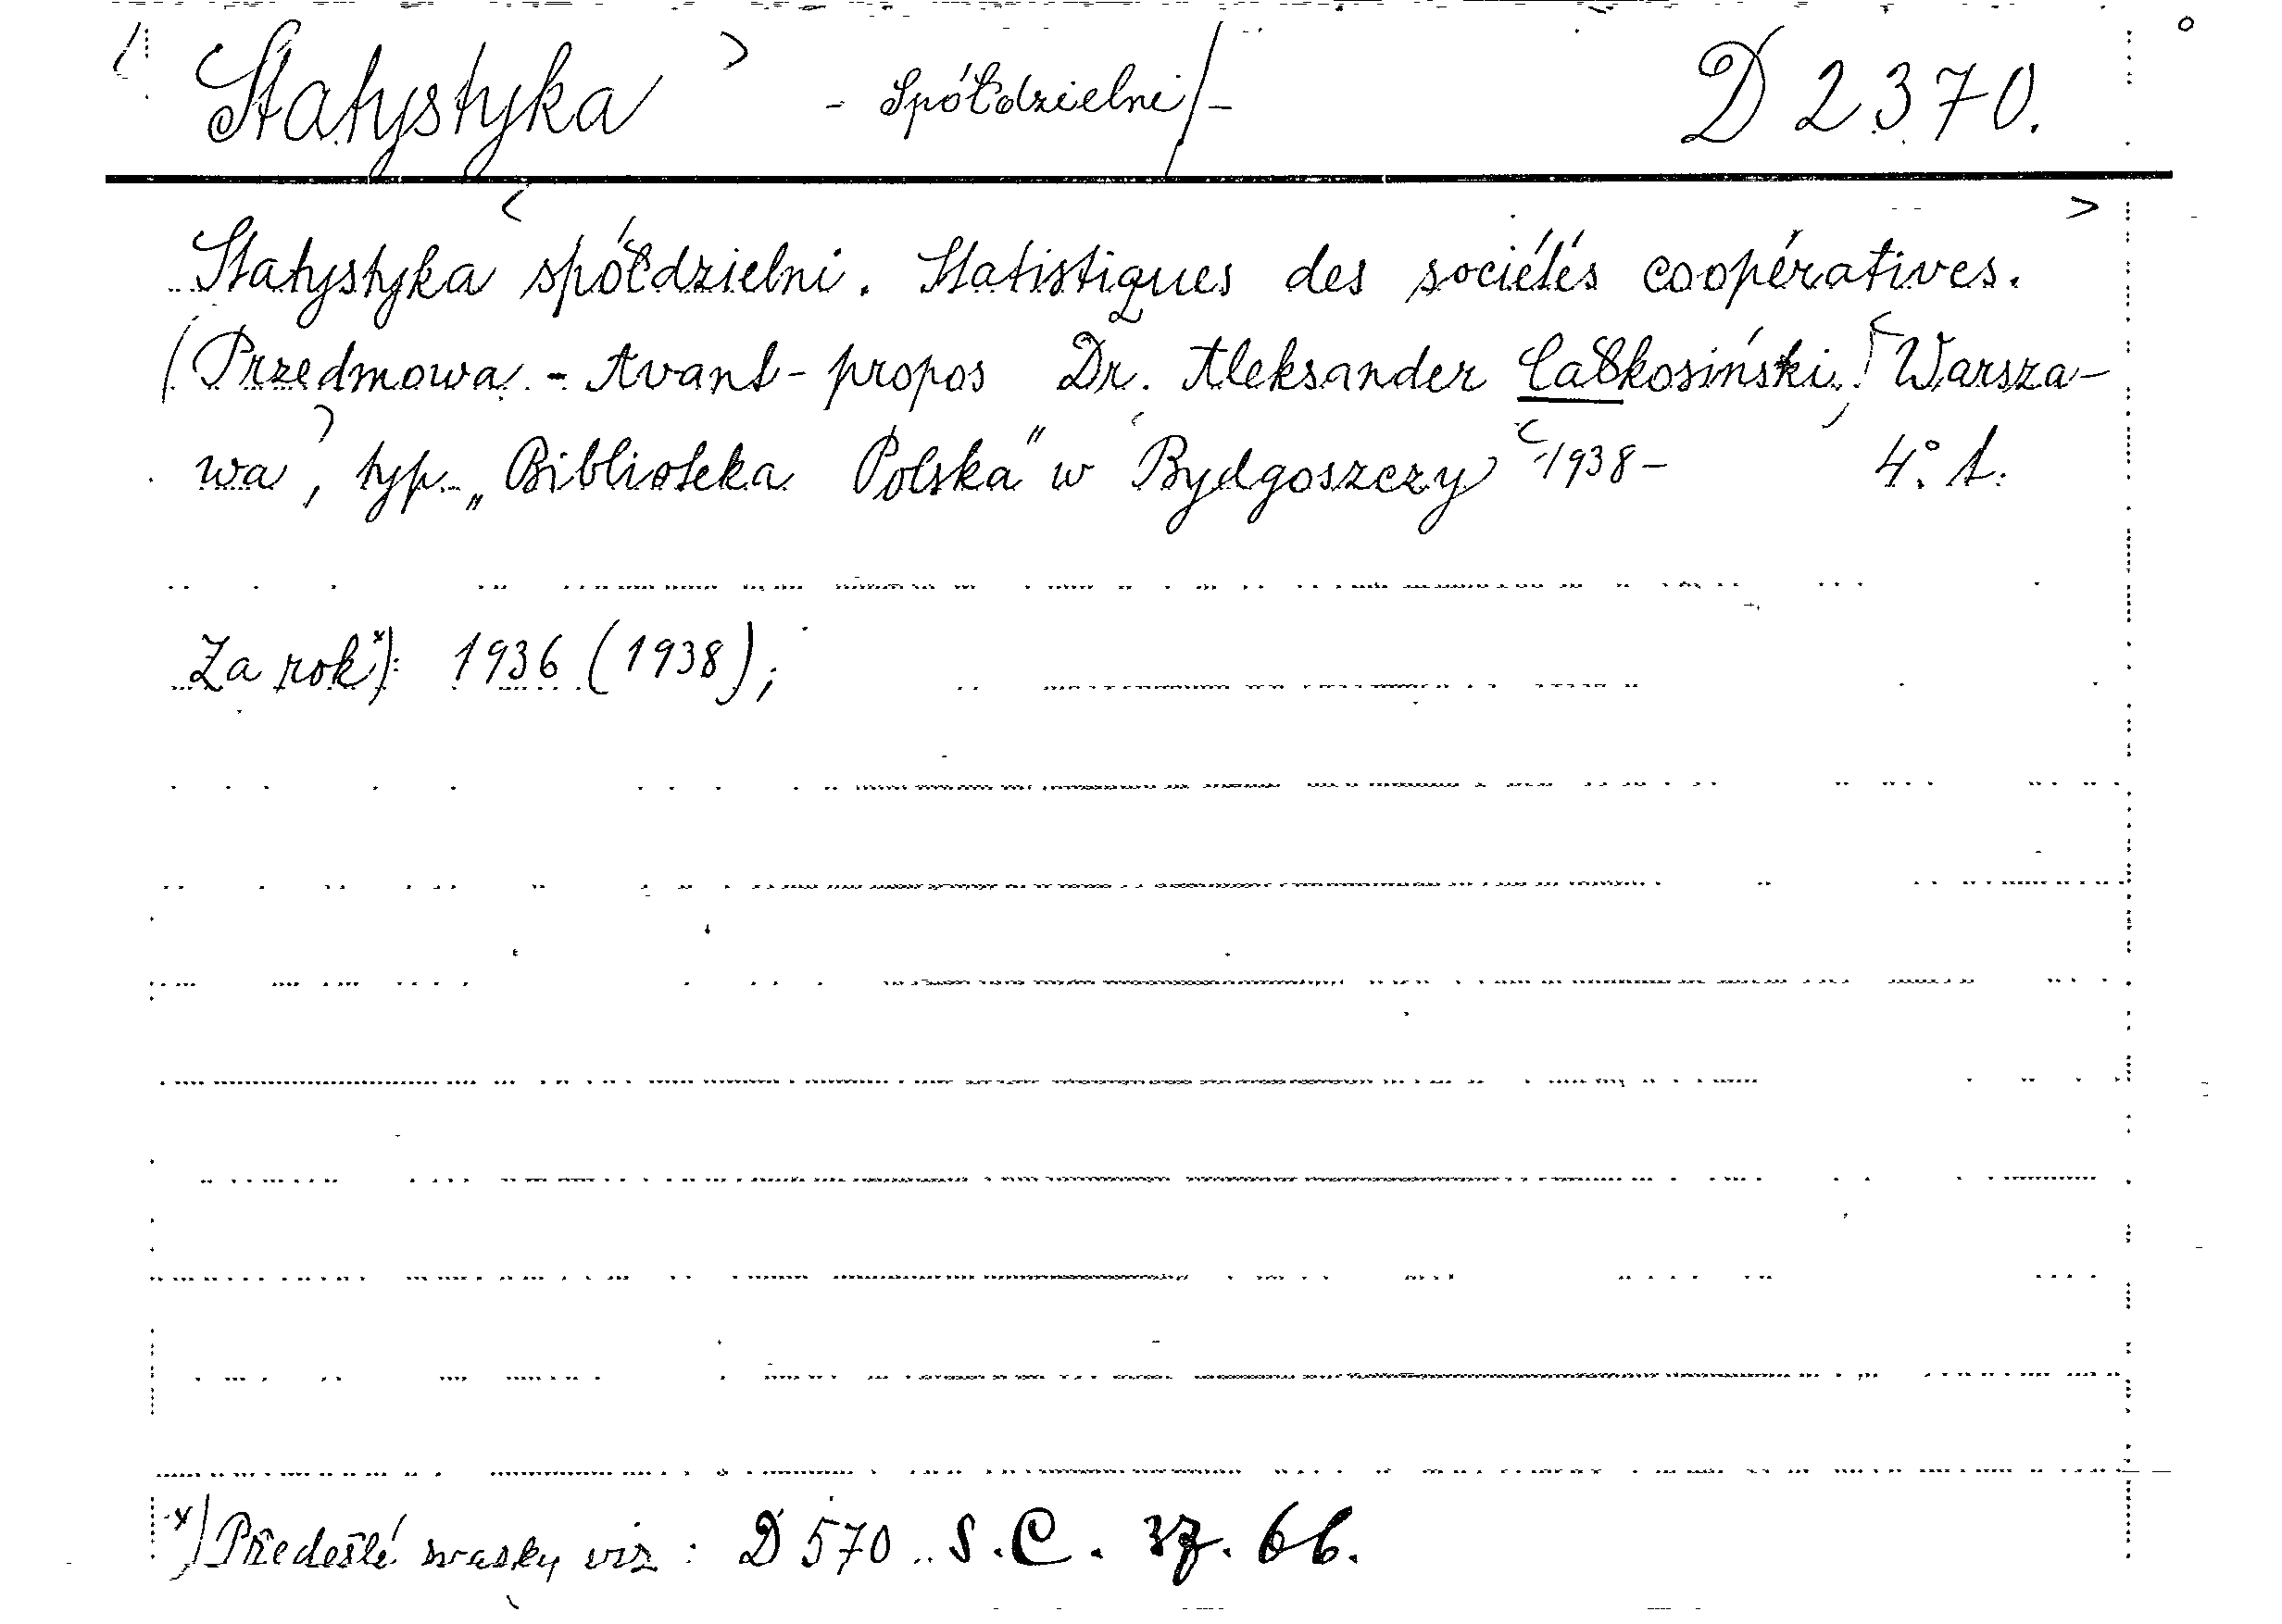 Statystyka - Spółdzielni/- D 2370.
Statystyka spółdzielni. Statistiques des sociétés coopératives.
(Przedmowa. - Avant-propos Dr. Aleksander Łałkosiński.) Warsza-
wa, typ. „Biblioteka Polska" w Bydgoszczy 1938- 4° t.
Za rok*): 1936 (1938);
*) Předešlé svazky viz: D 570. S.C. 66.